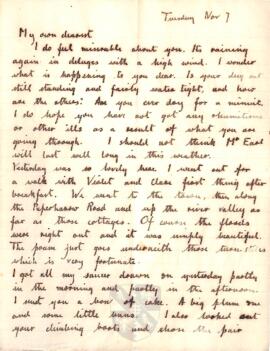 Tuesday Nov 7
My own dearest
I do feel miserable about you. Its raining
again in deluges with a high wind. I wonder
what is happening to you dear. Is your dug out
still standing and fairly water tight, and how
are the others? Are you ever dry for a minute.
I do hope you have not got any rheumatism
or other ills as a result of what you are
going through. I should not think Mr East
will last well long in this weather.
Yesterday was so lovely here. I went out for
a walk with Violet and Clare first thing after
breakfast. We went to the town, then along
the Peperharow Road and up the river valley as
far as those cottages. Of course the floods
were right out and it was simply beautiful.
The foam just goes underneath those
which is very fortunate.
I got all my sauce down on yesterday partly
in the morning and partly in the afternoon.
I sent you a box of cake. A big plum one
and some little buns. I also looked out
your climbing boots and chose the pair